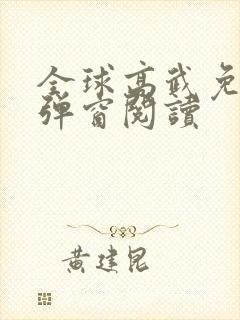 全球高武免
弹窗閱讀
黄建昆